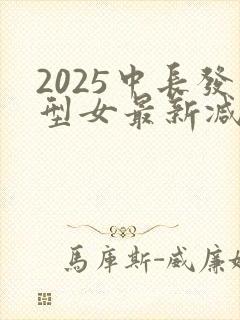 2025中长發
型女最新減
馬庫斯-威廉姆